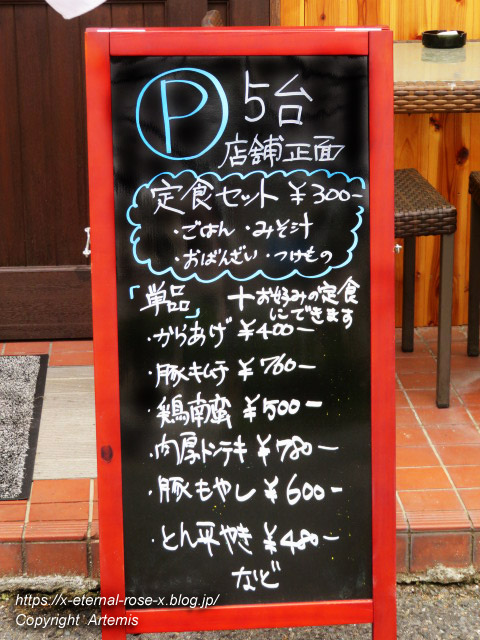 P 5台
店舗正面
定食セット ¥300-
・ごはん ・みそ汁
・おばんざい ・つけもの
「単品」 + お好みの定食
にできます
・からあげ ¥400-
・豚キムチ ¥760-
・鶏南蛮 ¥500-
・肉厚トンテキ ¥780-
・豚もやし ¥600-
・とん平やき ¥480-
など
https://x-eternal-rose-x.blog.jp/
Copyright Artemis